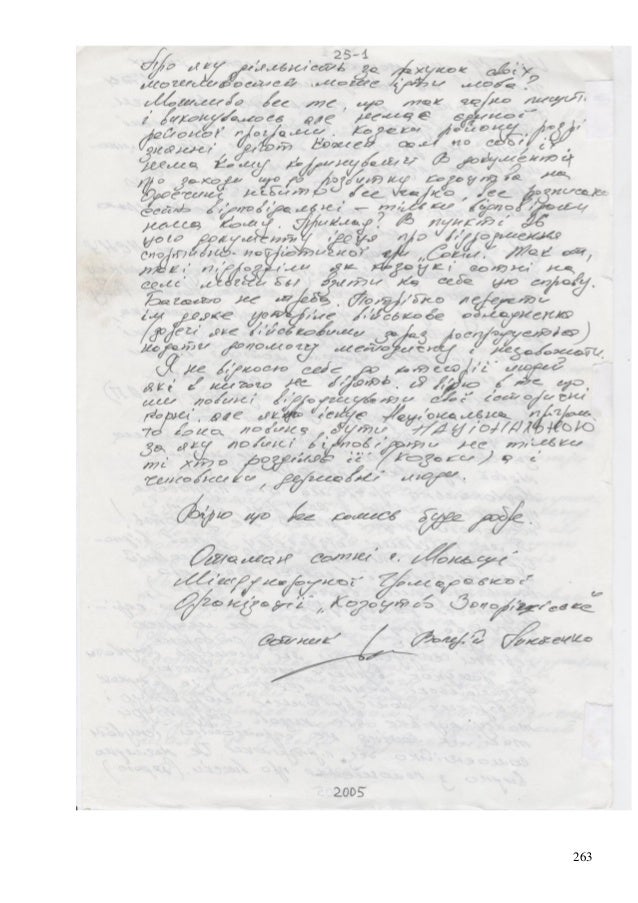 25-1
Про яку діяльність за рахунок своїх
можливостей може іти мова?
Можливо все те, що так гарно пишуть
і виконувалось але немає єдиної
районої програми. Козаки району розрі
знянні діють кожен сам по собі їх
нема кому коррінувати. В документі
про заходи що до розвитку козацтва на
нибито все гарно, все розписано
відповідальні – тільки відповідати
нема кому. Приклад? В пункті 26
цього документу ідеця про відродження
спортівно-патріотичної гри „Сокіл". Так от,
такі підрозділи як козацькі сотні на
селі могли бы взяти на себе цю справу.
Багато не треба. Потрібно передати
їм деяке устаріле військове обладнання
(до речі яке військовими зараз роспродується)
надати допомогу методичну і не заважати.
Я не відношу себе до категорії людей
які в ничого не вірять. Я вірю в те що
ми повині відроджувати свої історичні
корні, але якщо існує Національна програма
то вона повина бути НАЦІОНАЛЬНОЮ
за яку повині відповідати не тільки
ті хто розділяв її (козаки) а і
чиновники, державні люди.
Вірю що все колись буде добре.
Отаман сотні с. Моньки
Міжнародної Громадської
Організації „Козацтво Запорізьське"
сотник
2005
263